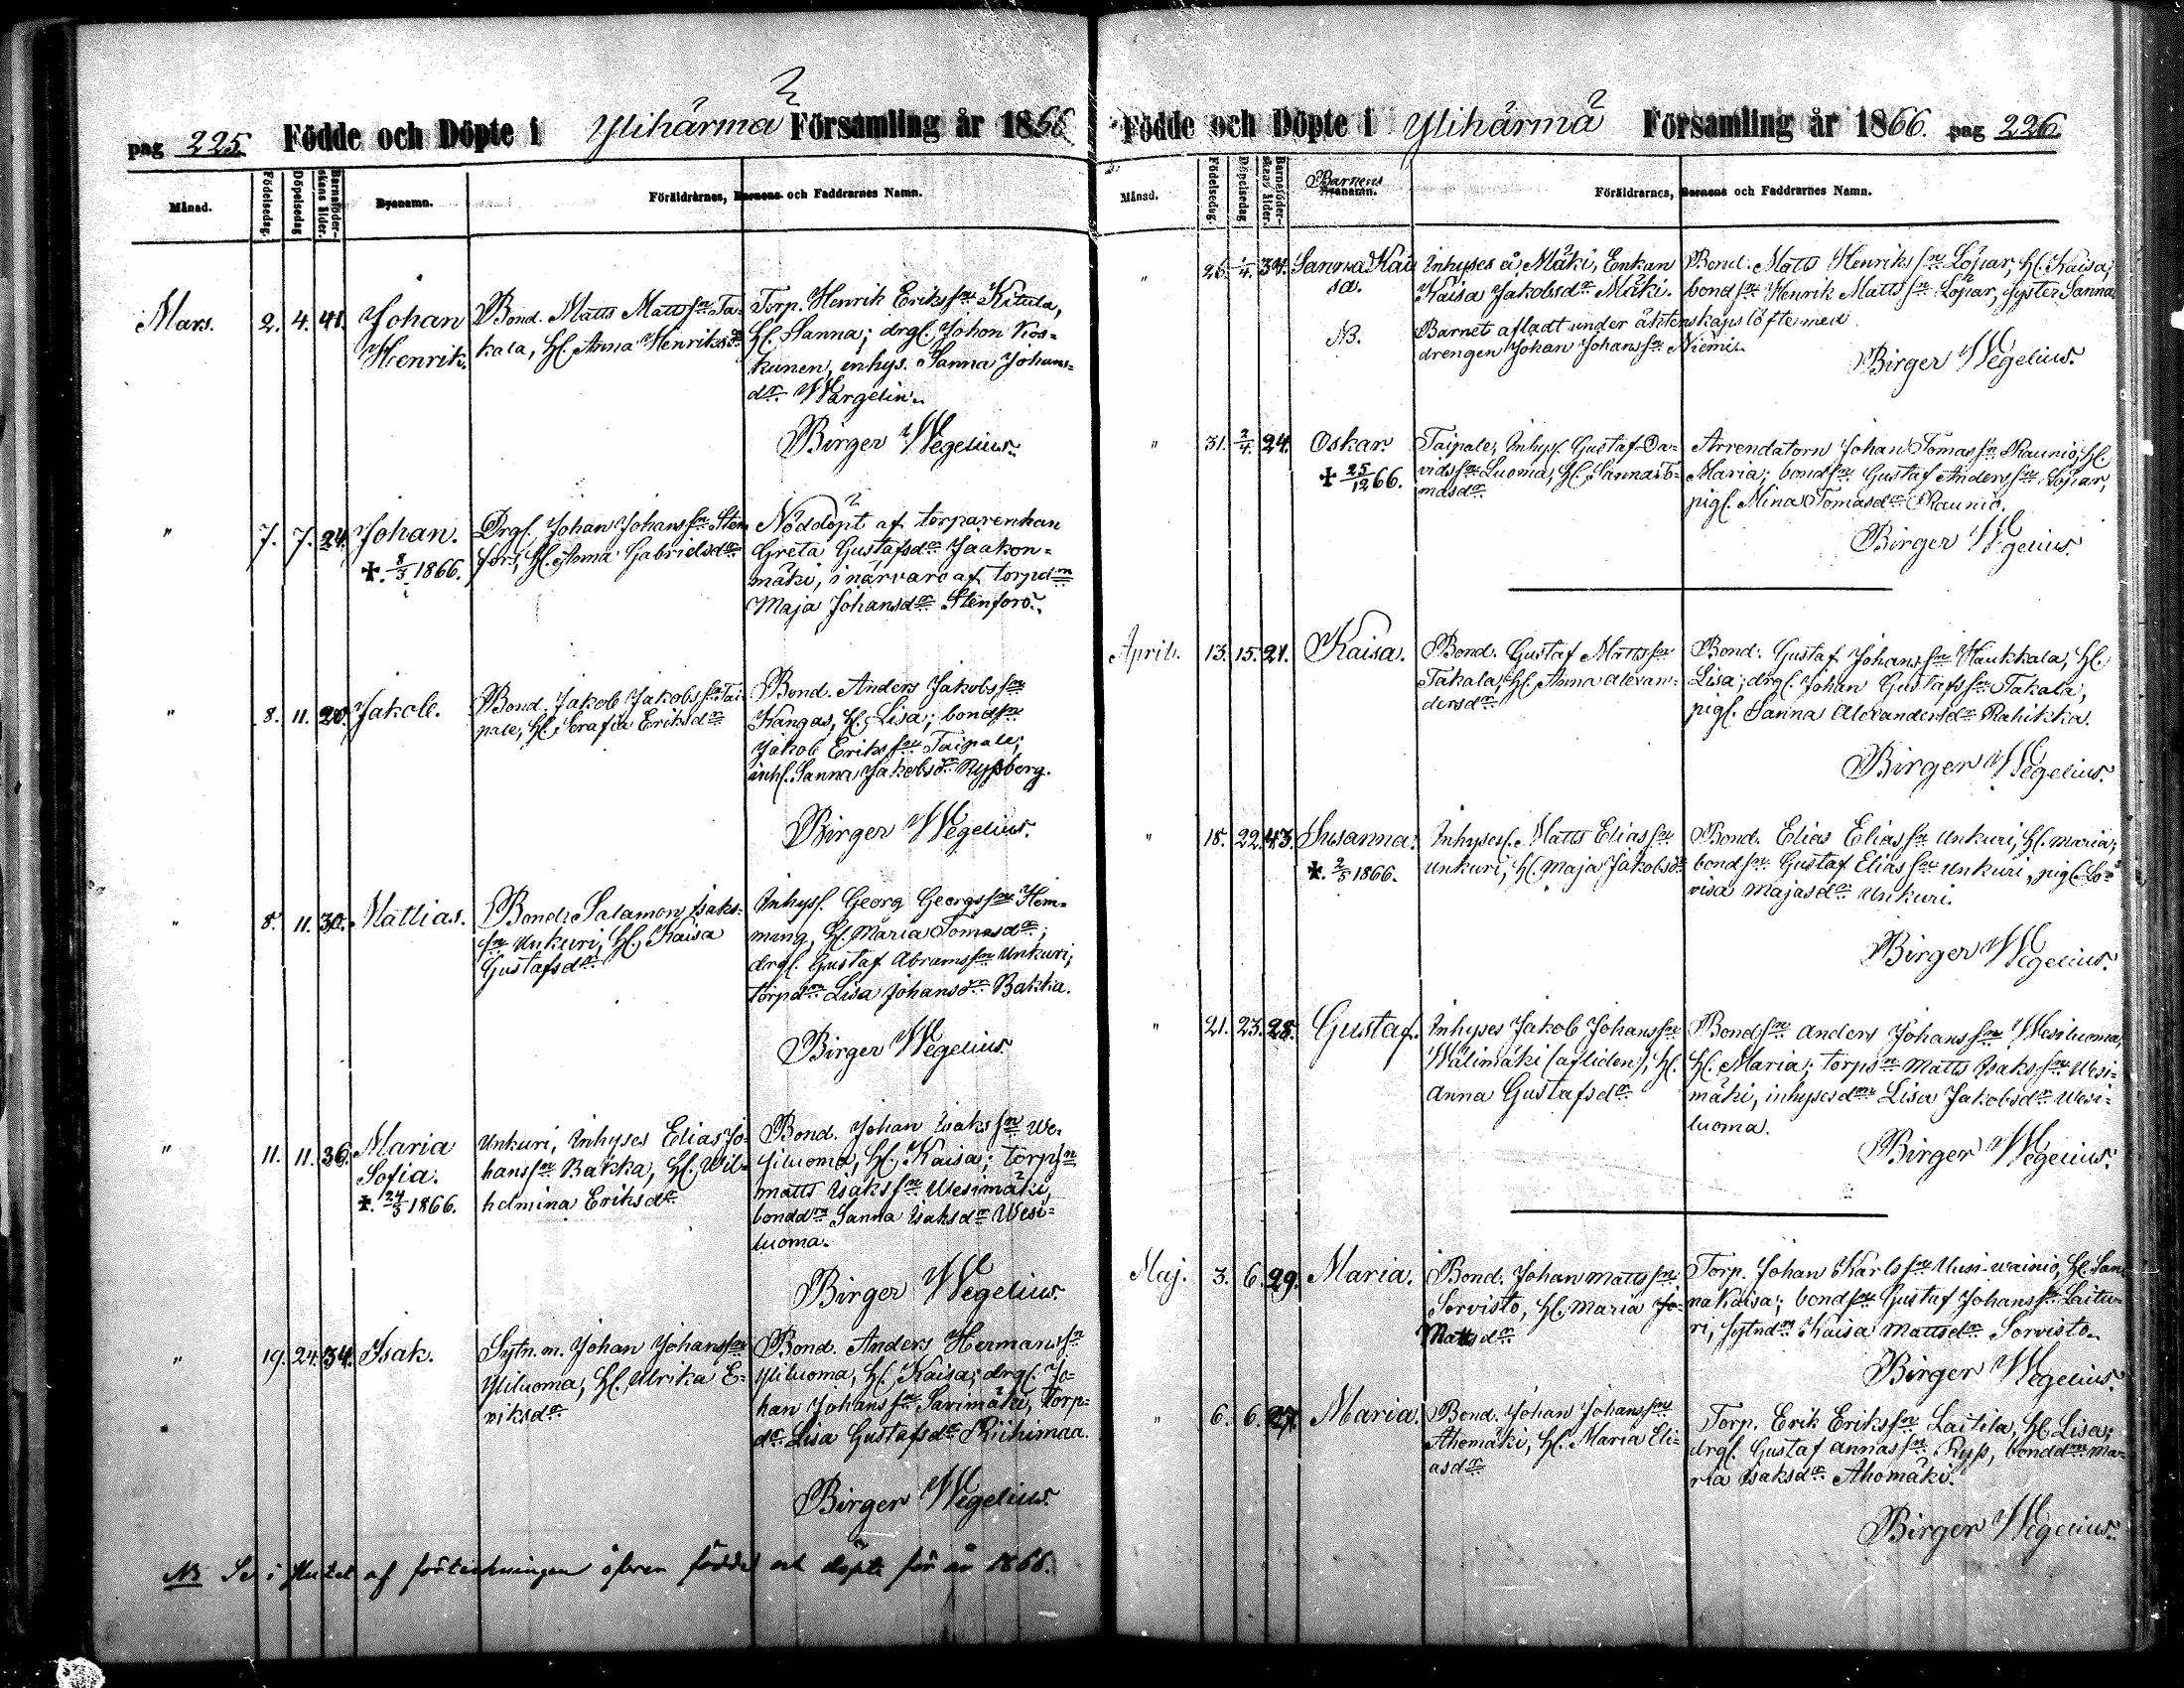 pag 225 Födde och Döpte i Ylihärmä Församling år 1866
Månad. Födelsedag. Döpelsedag Barnaföderskans ålder. Bysnamn. Föräldrarnes, Barnens och Faddrarnes Namn.
Mars. 2. 4. 41. Johan Henrik.
Bond. Matts Mattssn Ta-
kala, H. Anna Henriksdr
Torp. Henrik Erikssn Kitula,
H. Sanna; drgl. Johan Kos-
kunen, inhys. Sanna Johans-
dr Wargelin.
Birger Wegelius.
" 7. 7. 24. Johan.
✝. 8/3 1866.
Drgl. Johan Johanssn Sten
fors, H. Anna Gabrielsdr
Nöddöpt af torparenkan
Greta Gustafsdr Jaakon-
mäki, i närvaro af torpdm
Maja Johansdr Stenfors.
" 8. 11. 20. Jakob.
Bond. Jakob Jakobssn Tai-
pale, H. Serafia Eriksdr
Bond. Anders Jakobssn
Kangas, H. Lisa; bondsn
Jakob Erikssn Taipale;
inh. Sanna Jakobsdr Ryssberg.
Birger Wegelius.
" 8. 11. 30. Mattias.
Bond. Salamon Isaks-
sn Unkuri, H. Kaisa
Gustafsdr
Inhys. Georg Georgssn Hem-
ming, H. Maria Tomasdr;
drgl. Gustaf Abramssn Unkuri;
torpdm Lisa Johansdr Bakka.
Birger Wegelius.
" 11. 11. 36. Maria
Sofia.
✝. 24/3 1866.
Unkuri, Inhyses Elias Jo-
hanssn Bakka, H. Wil-
helmina Eriksdr
Bond. Johan Isakssn We-
siluoma, H. Kaisa; torpsn
Matts Isakssn Wesimäki,
bonddm Sanna Isaksdr Wesi-
luoma.
Birger Wegelius.
" 19. 24. 34. Isak.
Sytn.m. Johan Johanssn
Yliluoma, H. Ulrika E-
riksdr
Bond. Anders Hermanssn
Yliluoma, H. Kaisa; drgl. Jo-
han Johanssn Sarimäki, torp-
dr Lisa Gustafsdr Riihimaa.
Birger Wegelius.
NB Se i slutet af förteckningen öfver födde och döpte för år 1866.
Födde och Döpte i Ylihärmä Församling år 1866. pag 226
Månad. Födelsedag. Döpelsedag Barnaföderskans ålder. Barnens Bysnamn. Föräldrarnes, Barnens och Faddrarnes Namn.
" 26. 1/4. 34. Sanna Kai
sa.
NB.
Inhyses å Mäki, Enkan
Kaisa Jakobsdr Mäki.
Bond. Matts Henrikssn Löpar, H. Kaisa;
bondsn Henrik Mattssn Löpar, syster Sanna
Barnet afladt under äktenskaps löfte med
drengen Johan Johanssn Niemi.
Birger Wegelius.
" 31. 2/4. 24. Oskar.
✝ 25/12 66.
Taipale, Inhys. Gustaf Da-
vidssn Luoma, H. Sanna To-
masdr
Arrendatorn Johan Tomassn Raunio, H.
Maria; bondsn Gustaf Anderssn Löpar,
pigl. Mina Tomasdr Raunio.
Birger Wegelius.
April. 13. 15. 21. Kaisa.
Bond. Gustaf Mattssn
Takala, H. Anna Alexan-
dersdr
Bond. Gustaf Johanssn Haukkala, H.
Lisa; drgl. Johan Gustafssn Takala,
pigl. Sanna Alexandersdr Rahikka.
Birger Wegelius.
" 18. 22. 43. Susanna.
✝. 2/5 1866.
Inhyses. Matts Eliassn
Unkuri, H. Maja Jakobsdr
Bond. Elias Eliassn Unkuri, H. Maria;
bondsn Gustaf Eliassn Unkuri, pigl. Lo-
visa Majasdr Unkuri.
Birger Wegelius.
" 21. 23. 28. Gustaf.
Inhyses Jakob Johanssn
Wälimäki (afliden), H.
Anna Gustafsdr
Bondsn Anders Johanssn Wesiluoma,
H. Maria; torpsn Matts Isakssn Wesi-
mäki, inhysesdm Lisa Jakobsdr Wesi-
luoma.
Birger Wegelius.
Maj. 3. 6. 29. Maria.
Bond. Johan Mattssn
Sorvisto, H. Maria Jo-
Mattsdr
Torp. Johan Karlssn Uusi-wainio, H. San-
na Kaisa; bondsn Gustaf Johanssn Laitu-
ri, sytndm Kaisa Mattsdr Sorvisto.
Birger Wegelius.
" 6. 6. 27. Maria.
Bond. Johan Johanssn
Ahomäki, H. Maria Eli-
asdr
Torp. Erik Erikssn Laitila, H. Lisa;
drgl. Gustaf Annassn Ryss, bonddm Ma-
ria Isaksdr Ahomäki.
Birger Wegelius.